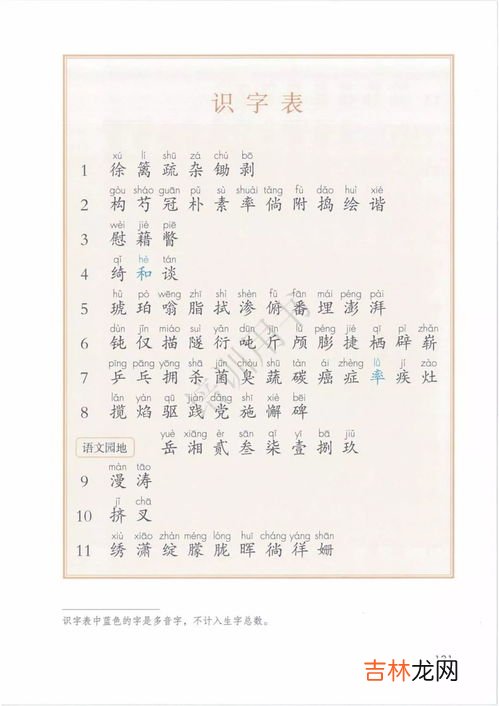 识字表
xú lí shū zá chú bō
1 徐 篱 疏 杂 锄 剥
gòu sháo guān pǔ sù shuài tǎng fù dǎo huì xié
2 构 芍 冠 朴 素 率 倘 附 捣 绘 谐
wèi jiè piē
3 慰 藉 瞥
qǐ hè tán
4 绮 和 谈
hǔ pò wēng zhī shì shèn fǔ fān mái péng pài
5 琥 珀 嗡 脂 拭 渗 俯 番 埋 澎 湃
dùn jǐn miáo suì yǎn dūn jīn lú péng jié qī pì zhǎn
6 钝 仅 描 隧 衍 吨 斤 颅 膨 捷 栖 辟 崭
pīng pāng yōng shā jūn chòu shū tàn ái zhèng lǜ jí zào
7 乒 乓 拥 杀 菌 臭 蔬 碳 癌 症 率 疾 灶
lǎn yàn qū jiàn dǎng shī xiè bēi
8 揽 焰 驱 践 党 施 懈 碑
yuè xiāng èr sān qī yī bā jiǔ
语文园地 岳 湘 贰 叁 柒 壹 捌 玖
màn tāo
9 漫 涛
jǐ chā
10 挤 叉
xiù xiāo zhàn méng lóng huī cháng yáng shān
11 绣 潇 绽 朦 胧 晖 徜 徉 姗
识字表中蓝色的字是多音字，不计入生字总数。
吉林龙网